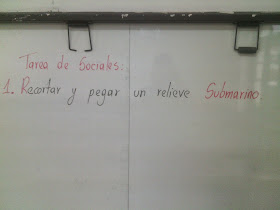 Tarea de Sociales:
1. Recortar y pegar un relieve Submarino.